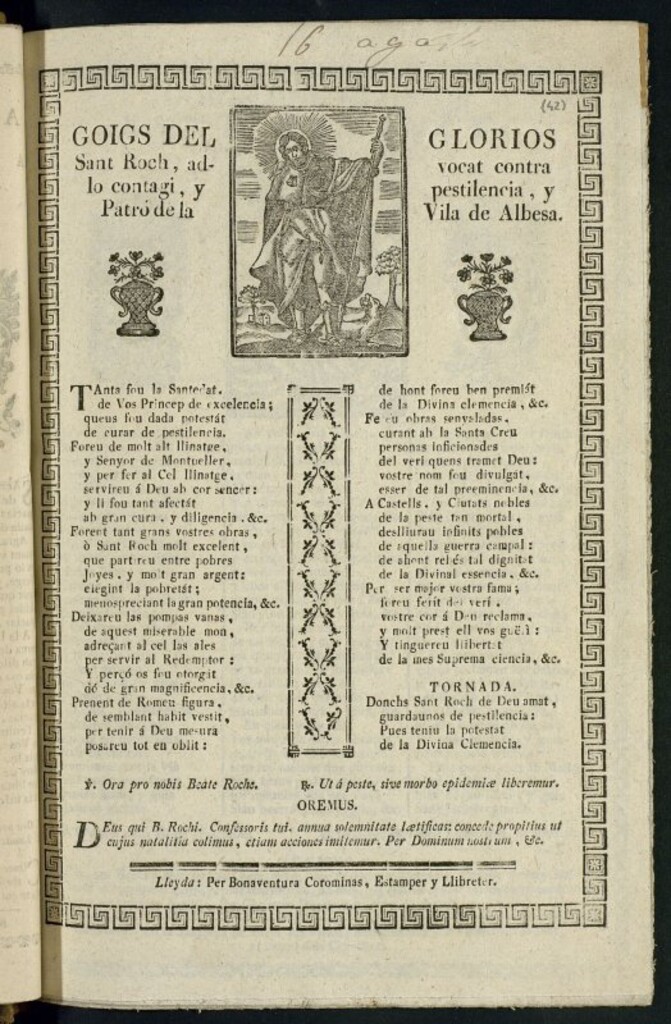 16 agost
(42)
GOIGS DEL GLORIOS
Sant Roch, ad- vocat contra
lo contagi, y pestilencia, y
Patró de la Vila de Albesa.
TAnta fou la Santedat.
de Vos Princep de excelencia;
queus fou dada potestát
de curar de pestilencia.
Foreu de molt alt llinatge,
y Senyor de Montpeller,
y per fer al Cel llinatge,
servireu á Deu ab cor sencer:
y li fou tant afectát
ab gran cura, y diligencia, &c.
Forent tant grans vostres obras,
ò Sant Roch molt excelent,
que partireu entre pobres
Joyes, y molt gran argent:
elegint la pobretát;
menospreciant la gran potencia, &c.
Deixareu las pompas vanas,
de aquest miserable mon,
adreçant al cel las ales
per servir al Redemptor:
Y perçó os fou otorgát
dó de gran magnificencia, &c.
Prenent de Romeu figura,
de semblant habit vestit,
per tenir á Deu mesura
posareu tot en oblit:
de hont foreu ben premiát
de la Divina clemencia, &c.
Fereu obras senyaladas,
curant ab la Santa Creu
personas inficionades
del verí quens tramet Deu:
vostre nom fou divulgát,
esser de tal preeminencia, &c.
A Castells, y Ciutats nobles
de la peste tan mortal,
deslliurau infinits pobles
de aquella guerra campal:
de ahont rebés tal dignitat
de la Divinal essencia, &c.
Per ser major vostra fama;
foreu ferit del verí,
vostre cor á Deu reclama,
y molt prest ell vos guarí:
Y tinguereu llibertat
de la mes Suprema ciencia, &c.
TORNADA.
Donchs Sant Roch de Deu amat,
guardaunos de pestilencia:
Pues teniu la potestat
de la Divina Clemencia.
℣. Ora pro nobis Beate Roche. ℟. Ut á peste, sive morbo epidemiæ liberemur.
OREMUS.
DEus qui B. Rochi. Confessoris tui. annua solemnitate lætificas: concede propitius ut
cujus natalitia colimus, etiam acciones imitemur. Per Dominum nostrum, &c.
Lleyda: Per Bonaventura Corominas, Estamper y Llibreter.